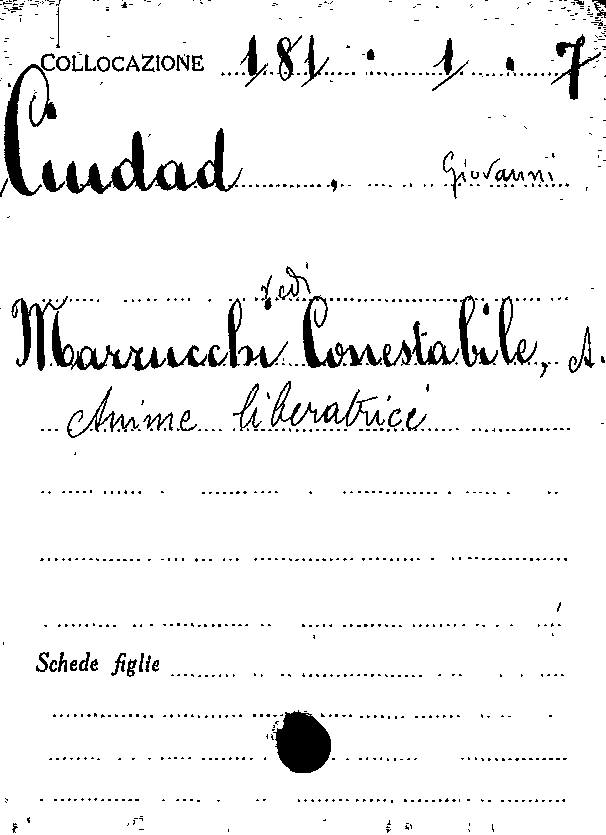 COLLOCAZIONE 181 . 1 . 7
Ciudad, Giovanni
vedi
Marzucchi Conestabile, A.
Anime liberatrici
Schede figlie